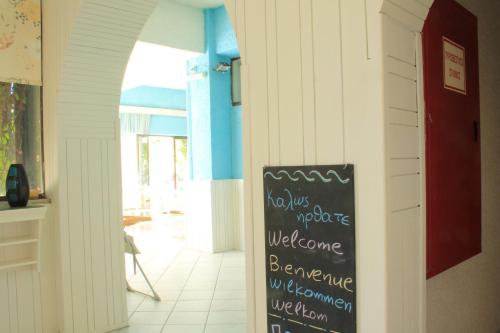 Καλώς
ηρθατε
Welcome
Bienvenue
Wilkommen
Welkom